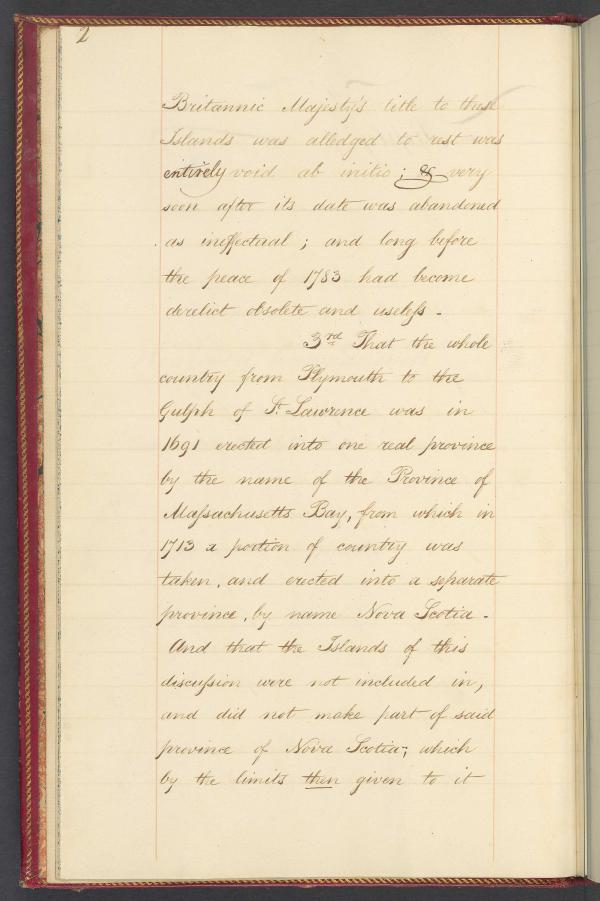 2
Britannic Majesty's title to these
Islands was alledged to rest was
entirely void ab initio; & very
soon after its date was abandoned
as ineffectual; and long before
the peace of 1783 had become
derelict obsolete and useless -
3rd That the whole
country from Plymouth to the
Gulph of St. Lawrence was in
1691 erected into one real province
by the name of the Province of
Massachusetts Bay, from which in
1713 a portion of country was
taken, and erected into a separate
province, by name Nova Scotia -
And that the Islands of this
discussion were not included in,
and did not make part of said
province of Nova Scotia; which
by the limits then given to it